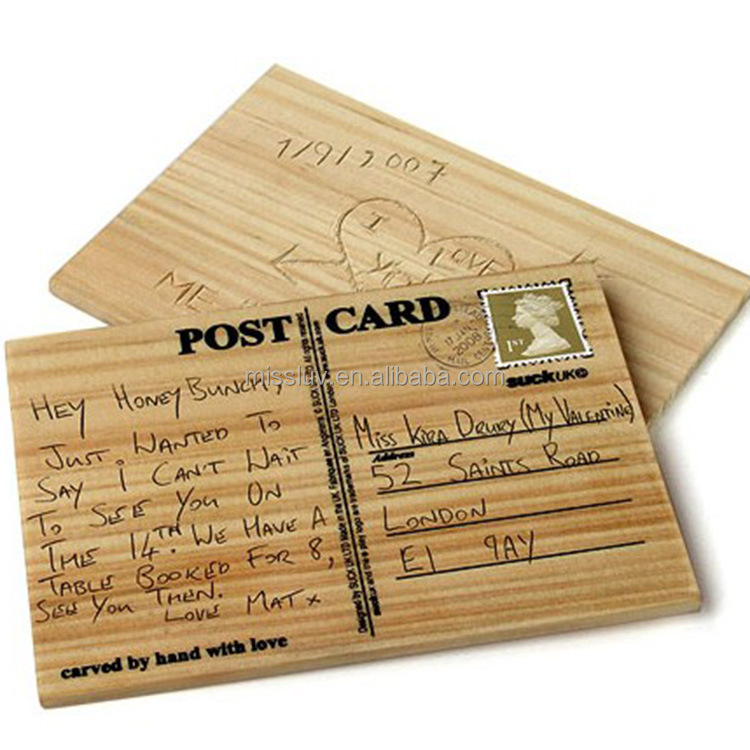 1/9/2007
I LOVE
YOU
ME
POST CARD
1ST
SUCK UK©
HEY HONEY BUNCH,
JUST WANTED TO
SAY I CAN'T WAIT
TO SEE YOU ON
THE 14TH. WE HAVE A
TABLE BOOKED FOR 8,
SEE YOU THEN.
LOVE MAT x
carved by hand with love
Designed by SUCK UK LTD Made in the UK.
MISS KIRA DRURY (MY VALENTINE)
Address
52 SAINTS ROAD
LONDON
E1 9AY
missluv.en.alibaba.com